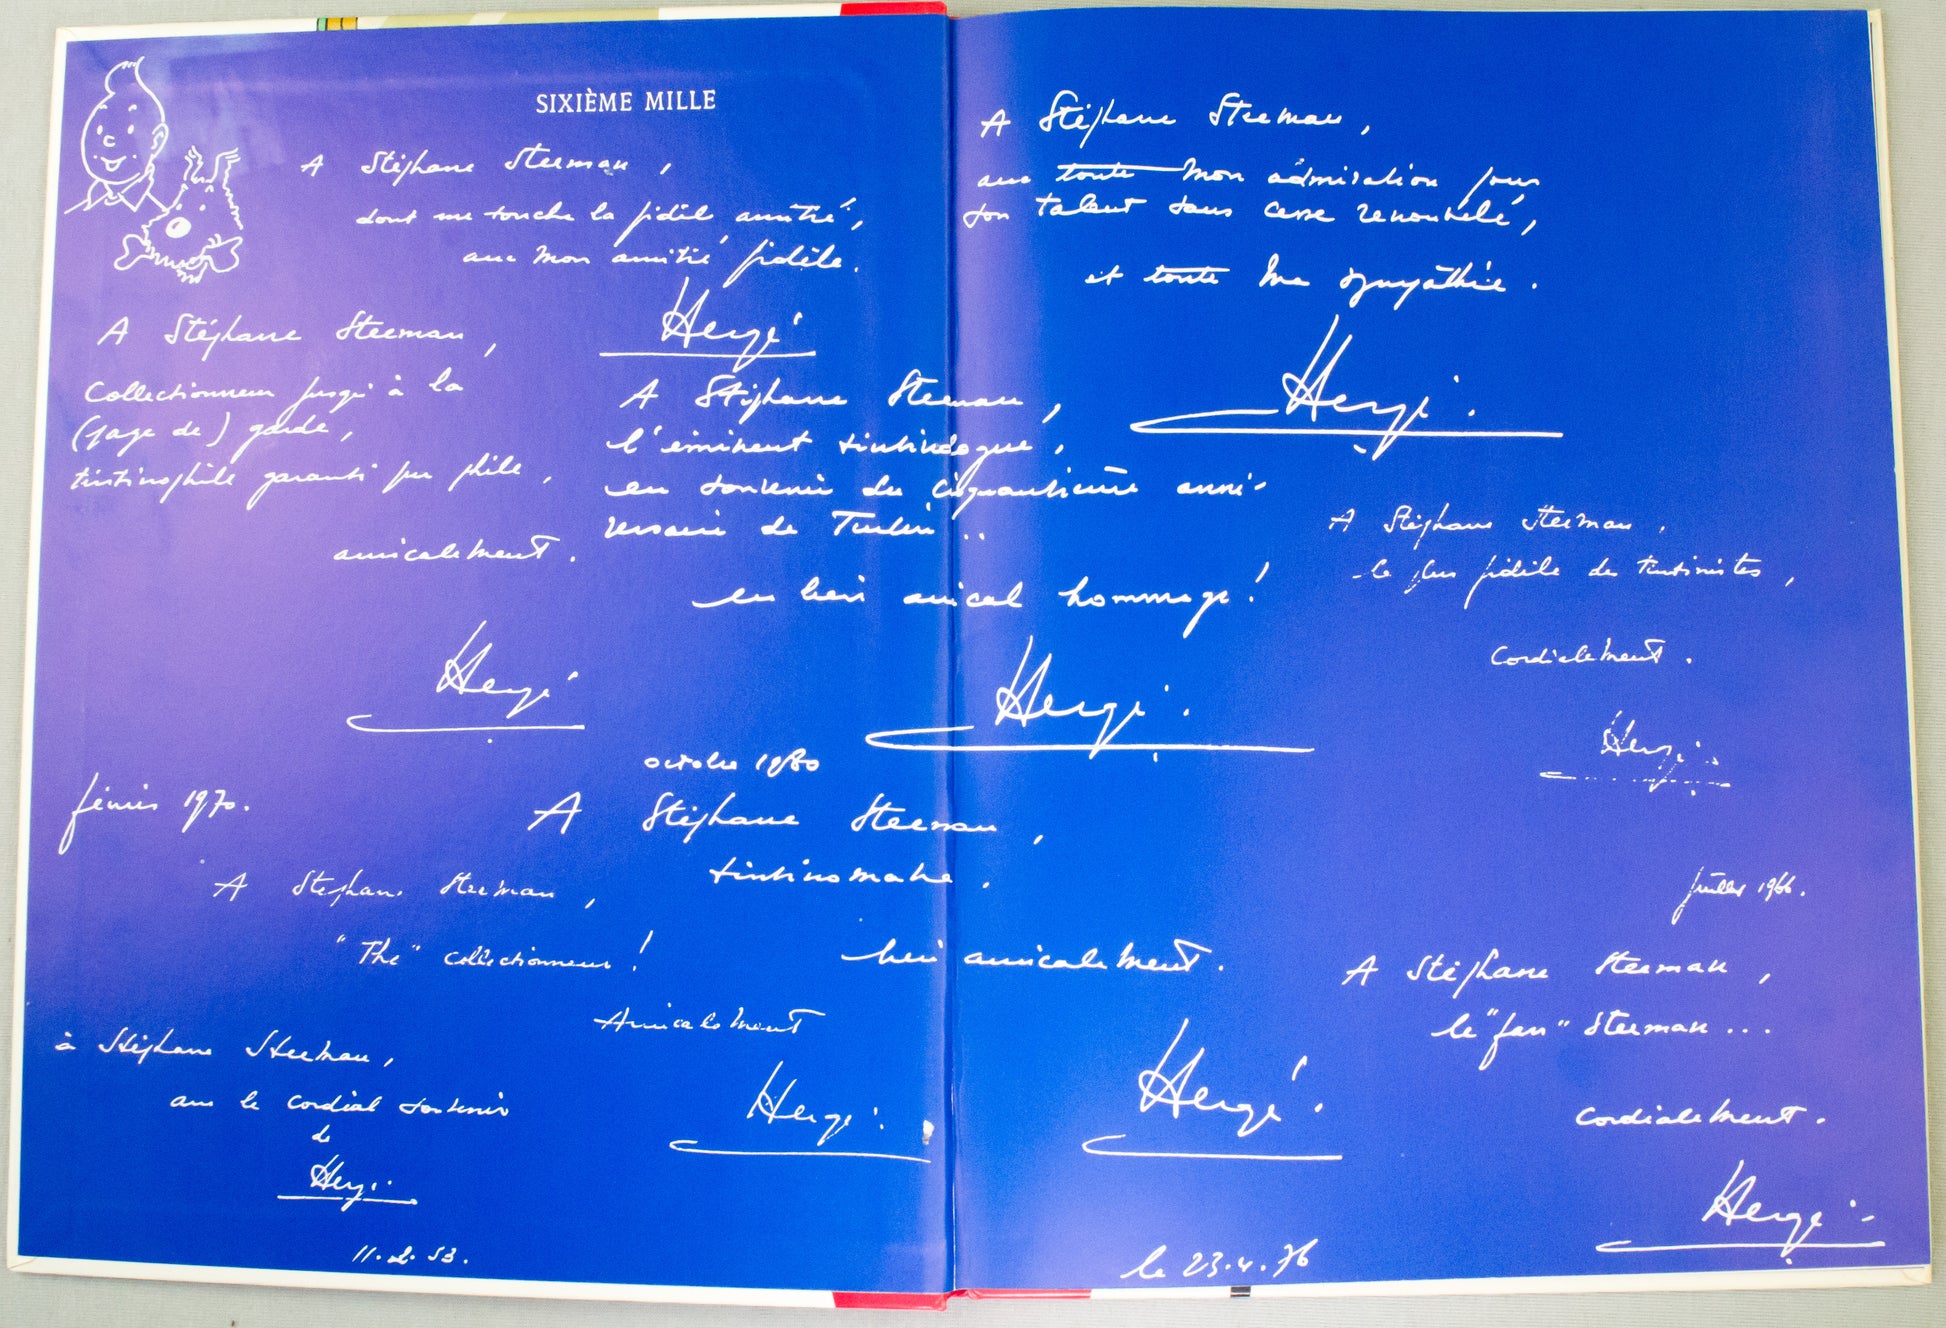 SIXIÈME MILLE
A Stéphane Steeman,
dont me touche la fidèle amitié,
avec mon amitié fidèle.
Hergé
A Stéphane Steeman,
Collectionneur jusqu'à la
(page de) garde,
tintinophile garanti pur phile,
amicalement.
Hergé
février 1970.
A Stéphane Steeman,
l'éminent tintinologue,
en souvenir du cinquantième anni-
versaire de Tintin..
en bien amical hommage!
Hergé.
octobre 1980
A Stéphane Steeman,
"The" collectionneur!
Amicalement
Hergé.
à Stéphane Steeman,
avec le cordial souvenir
de
Hergé.
11.2.53.
A Stéphane Steeman,
tintinomane.
bien amicalement.
Hergé.
le 23.4.76
A Stéphane Steeman,
avec toute mon admiration pour
son talent sans cesse renouvelé,
et toute ma sympathie.
Hergé.
A Stéphane Steeman,
le plus fidèle des tintinistes,
Cordialement.
Hergé.
juillet 1966.
A Stéphane Steeman,
le "fan" Steeman...
cordialement.
Hergé